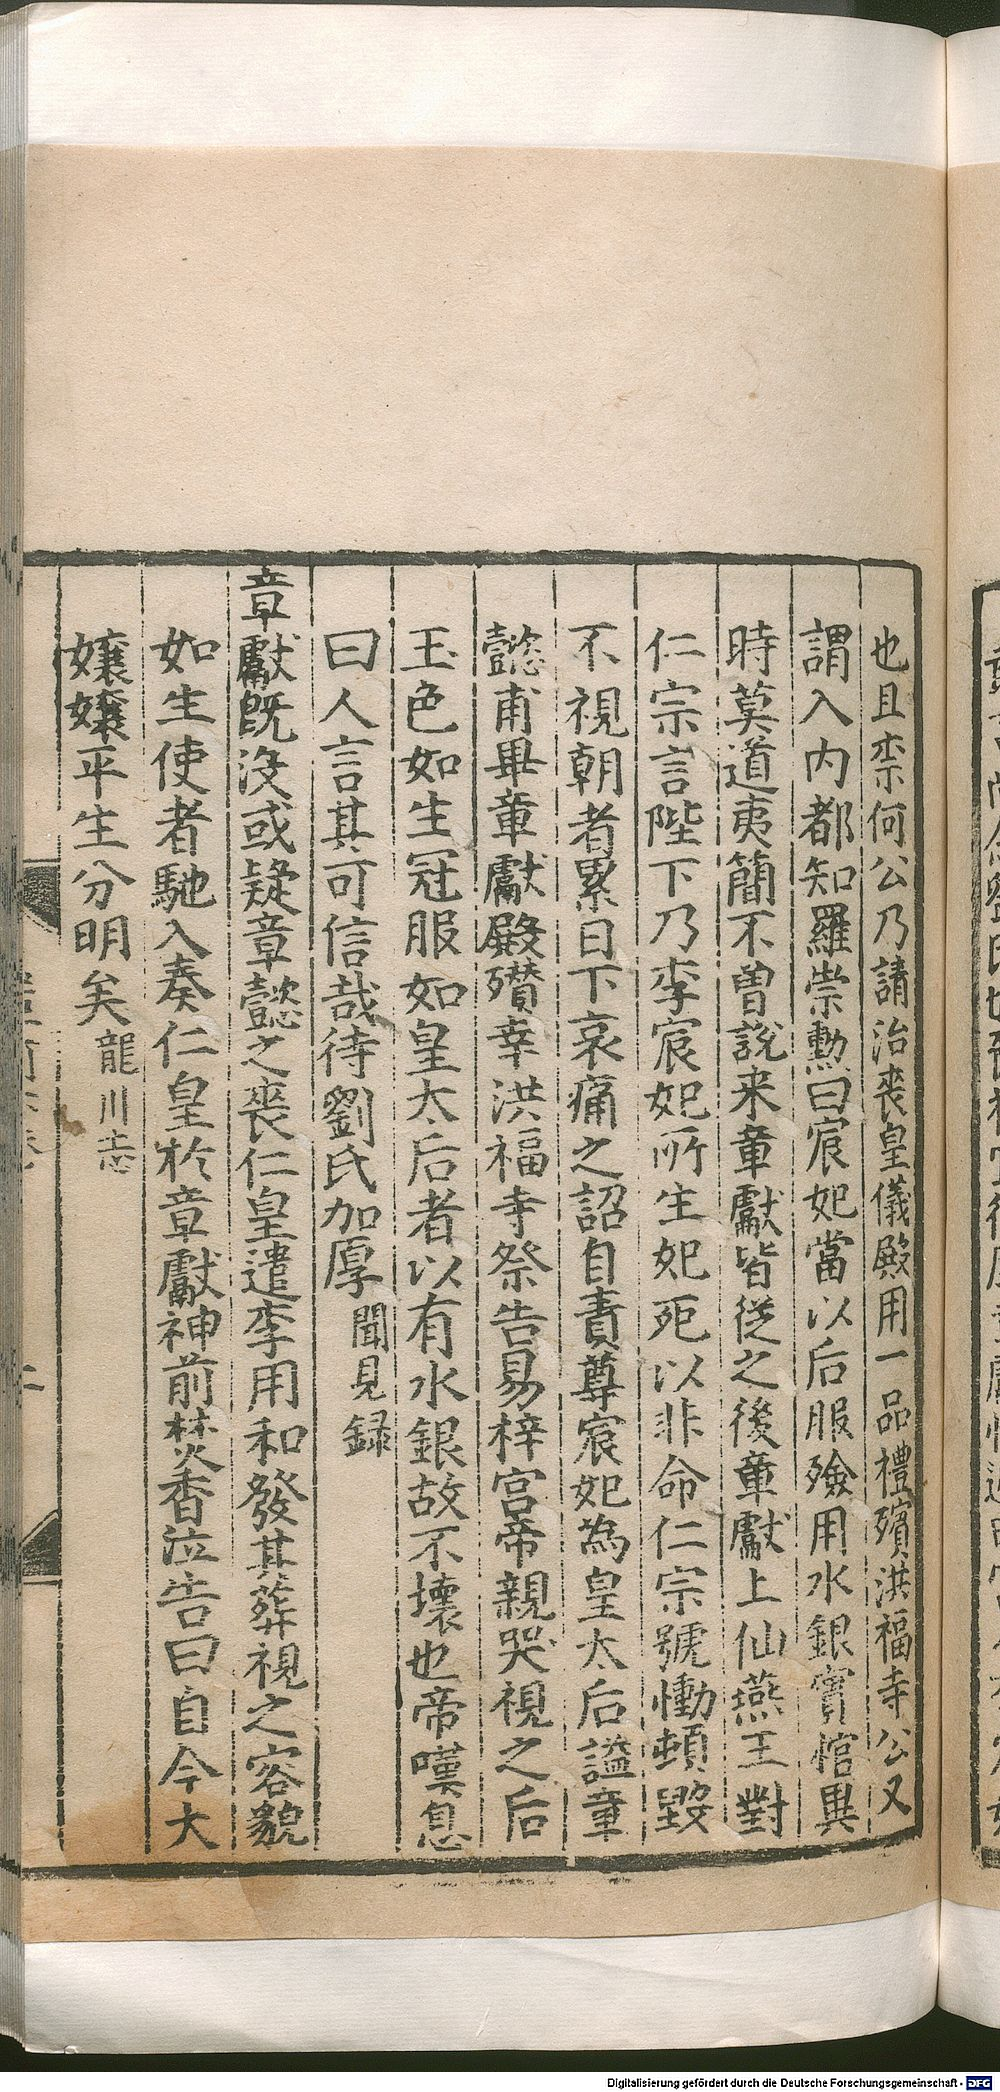 也且柰何公乃請治喪皇儀殿用一品禮殯洪福寺公又
謂入内都知羅崇勳曰宸妃當以后服殮用水銀實棺異
時莫道夷簡不曾說来章獻皆從之後章獻上仙燕王對
仁宗言陛下乃李宸妃所生妃死以非命仁宗號慟頓毀
不視朝者累日下哀痛之詔自責尊宸妃為皇太后謚章
懿甫畢章獻殿殯幸洪福寺祭告易梓宫帝親哭視之后
玉色如生冠服如皇太后者以有水銀故不壞也帝嘆息
曰人言其可信哉待劉氏加厚聞見録
章獻既没或疑章懿之喪仁皇遣李用和發其葬視之容貌
如生使者馳入奏仁皇於章獻神前焚香泣告曰自今大
孃孃平生分明矣龍川志
Digitalisierung gefördert durch die Deutsche Forschungsgemeinschaft - DFG